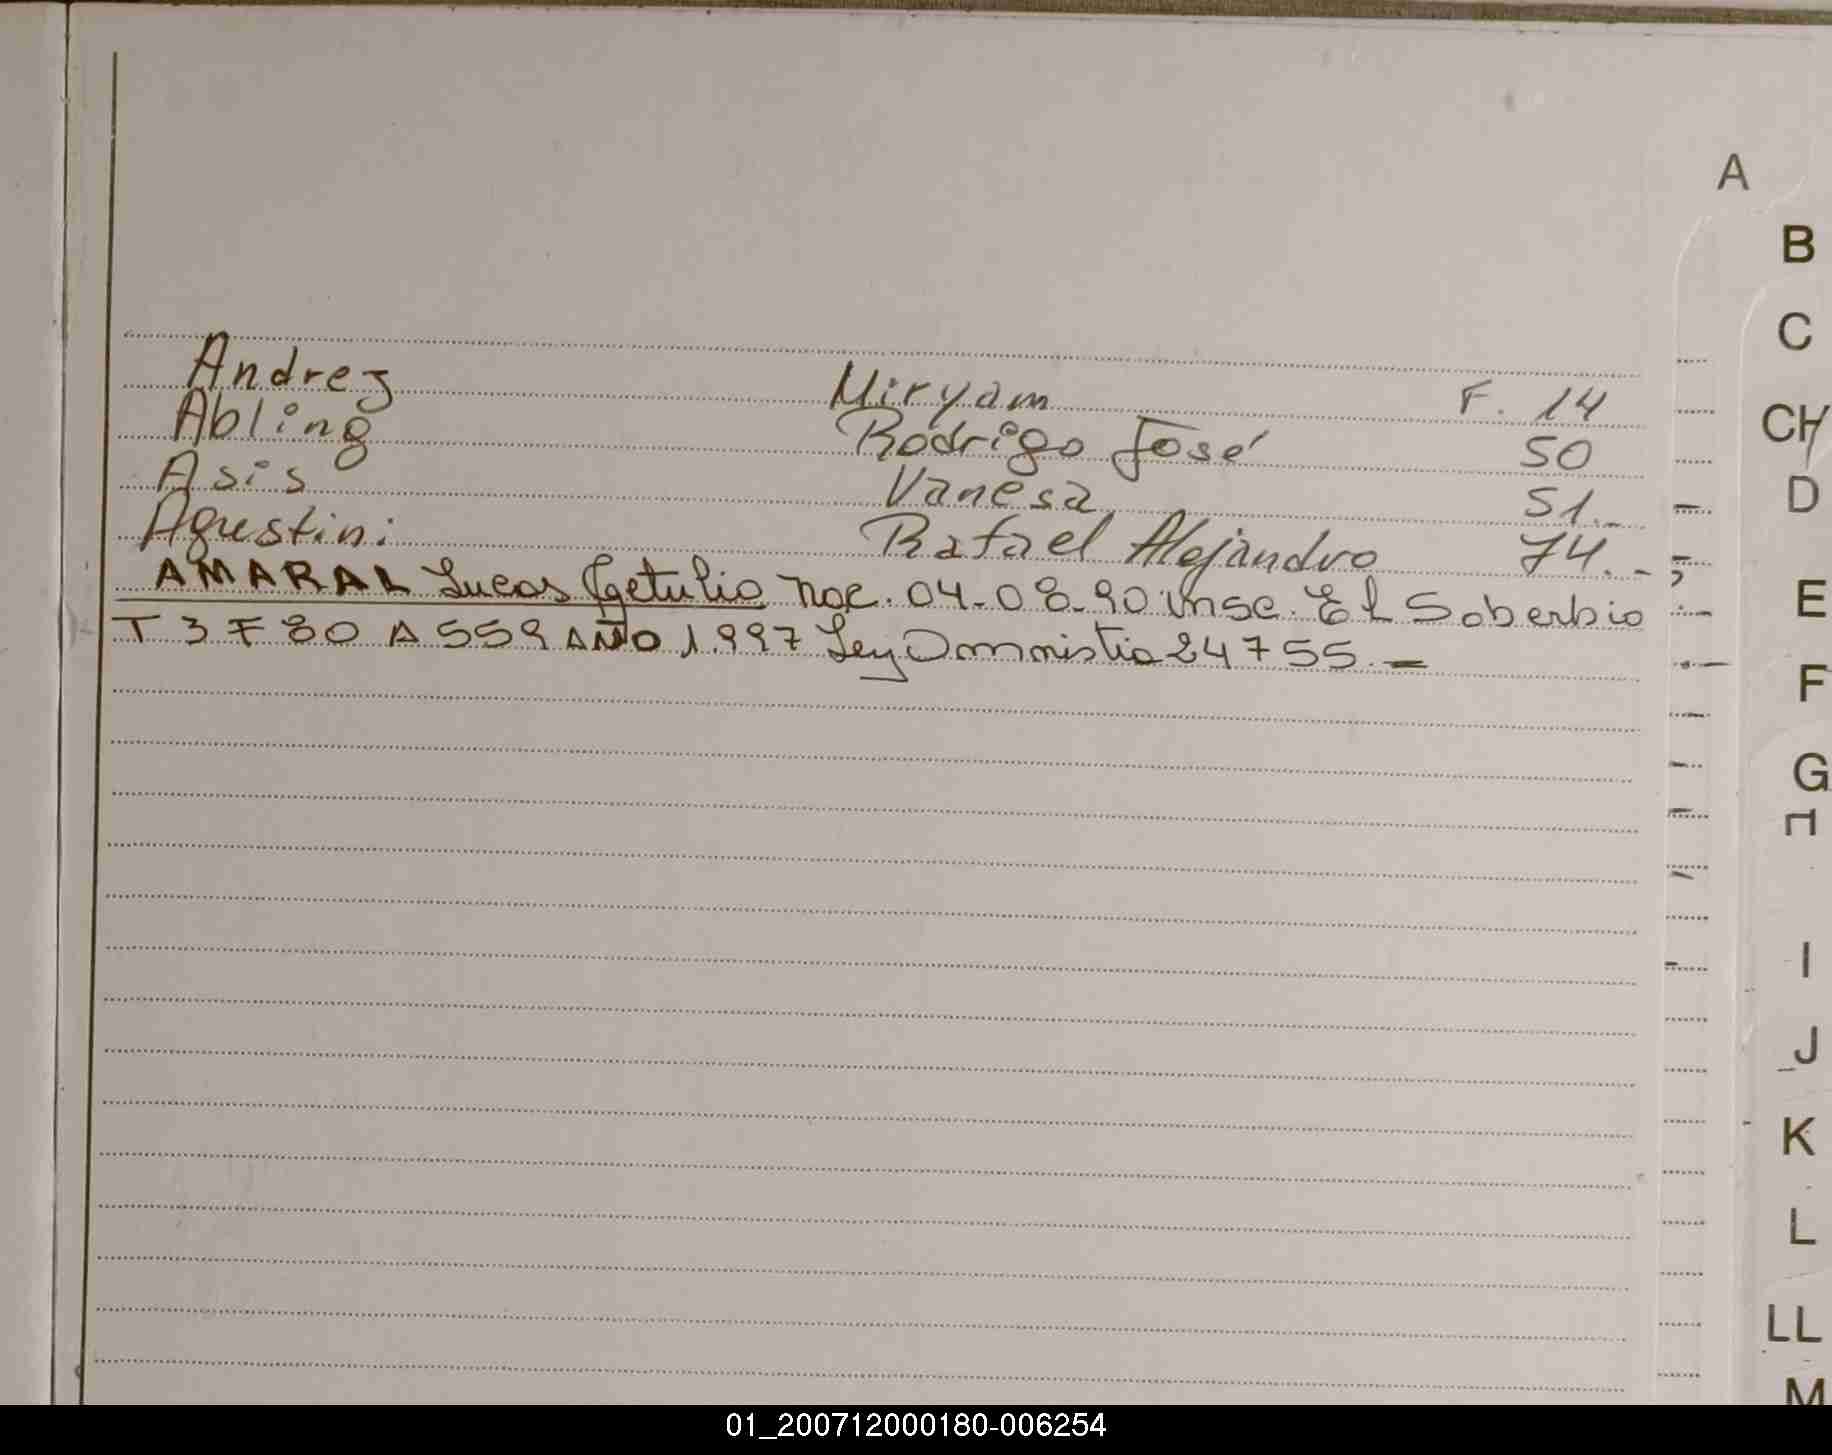 A
B
C
CH
D
E
F
G
I
J
K
L
LL
M
Andrez Miryam F. 14
Abling Rodrigo José 50
Asis Vanesa 51.-
Agustini Rafael Alejandro 74.-
AMARAL Lucas Getulio nac. 04-08-90 insc. El Soberbio
T 3 F 80 A 559 AÑO 1.997 Ley Amnistia 24755.-
01_200712000180-006254